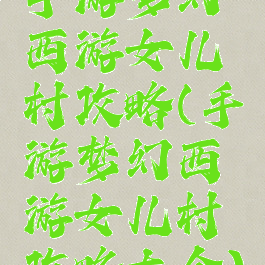 手游梦幻
西游女儿
村攻略(手
游梦幻西
游女儿村
攻略大全)